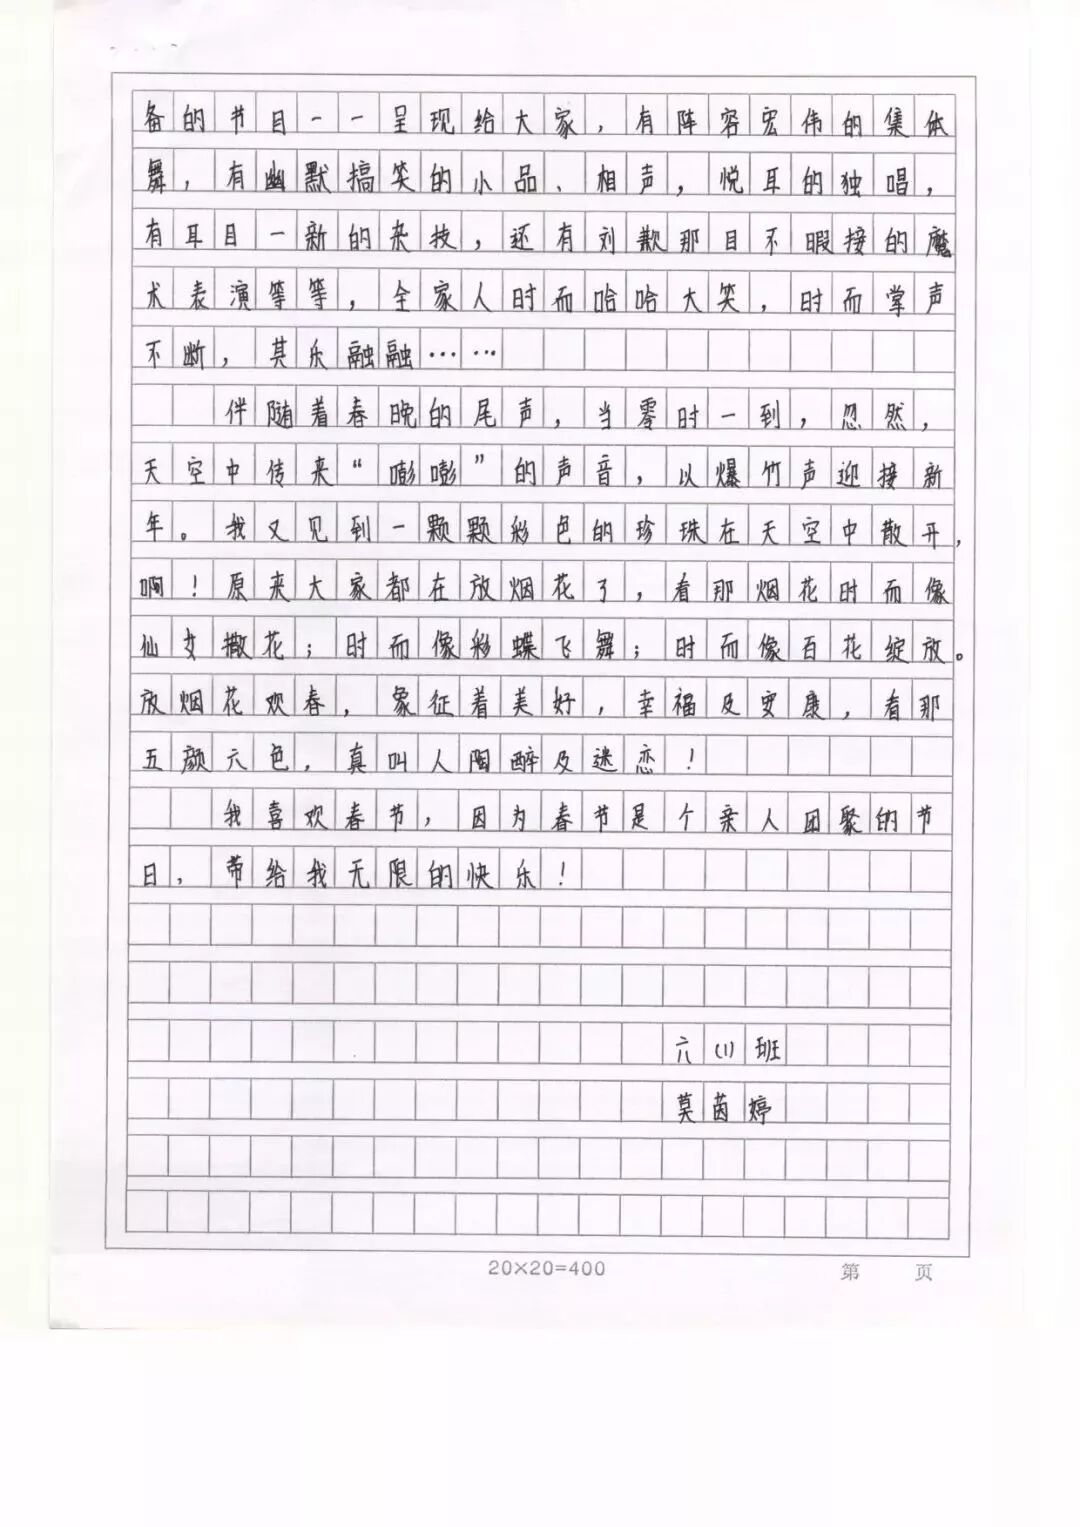 备的节目一一呈现给大家，有阵容宏伟的集体
舞，有幽默搞笑的小品、相声，悦耳的独唱，
有耳目一新的杂技，还有刘歉那目不暇接的魔
术表演等等，全家人时而哈哈大笑，时而掌声
不断，其乐融融……
伴随着春晚的尾声，当零时一到，忽然，
天空中传来“嘭嘭”的声音，以爆竹声迎接新
年。我又见到一颗颗彩色的珍珠在天空中散开，
啊！原来大家都在放烟花了，看那烟花时而像
仙女撒花；时而像彩蝶飞舞；时而像百花绽放。
放烟花欢春，象征着美好，幸福及安康，看那
五颜六色，真叫人陶醉及迷恋！
我喜欢春节，因为春节是个亲人团聚的节
日，带给我无限的快乐！
六(1)班
莫茵婷
20×20=400
第 页